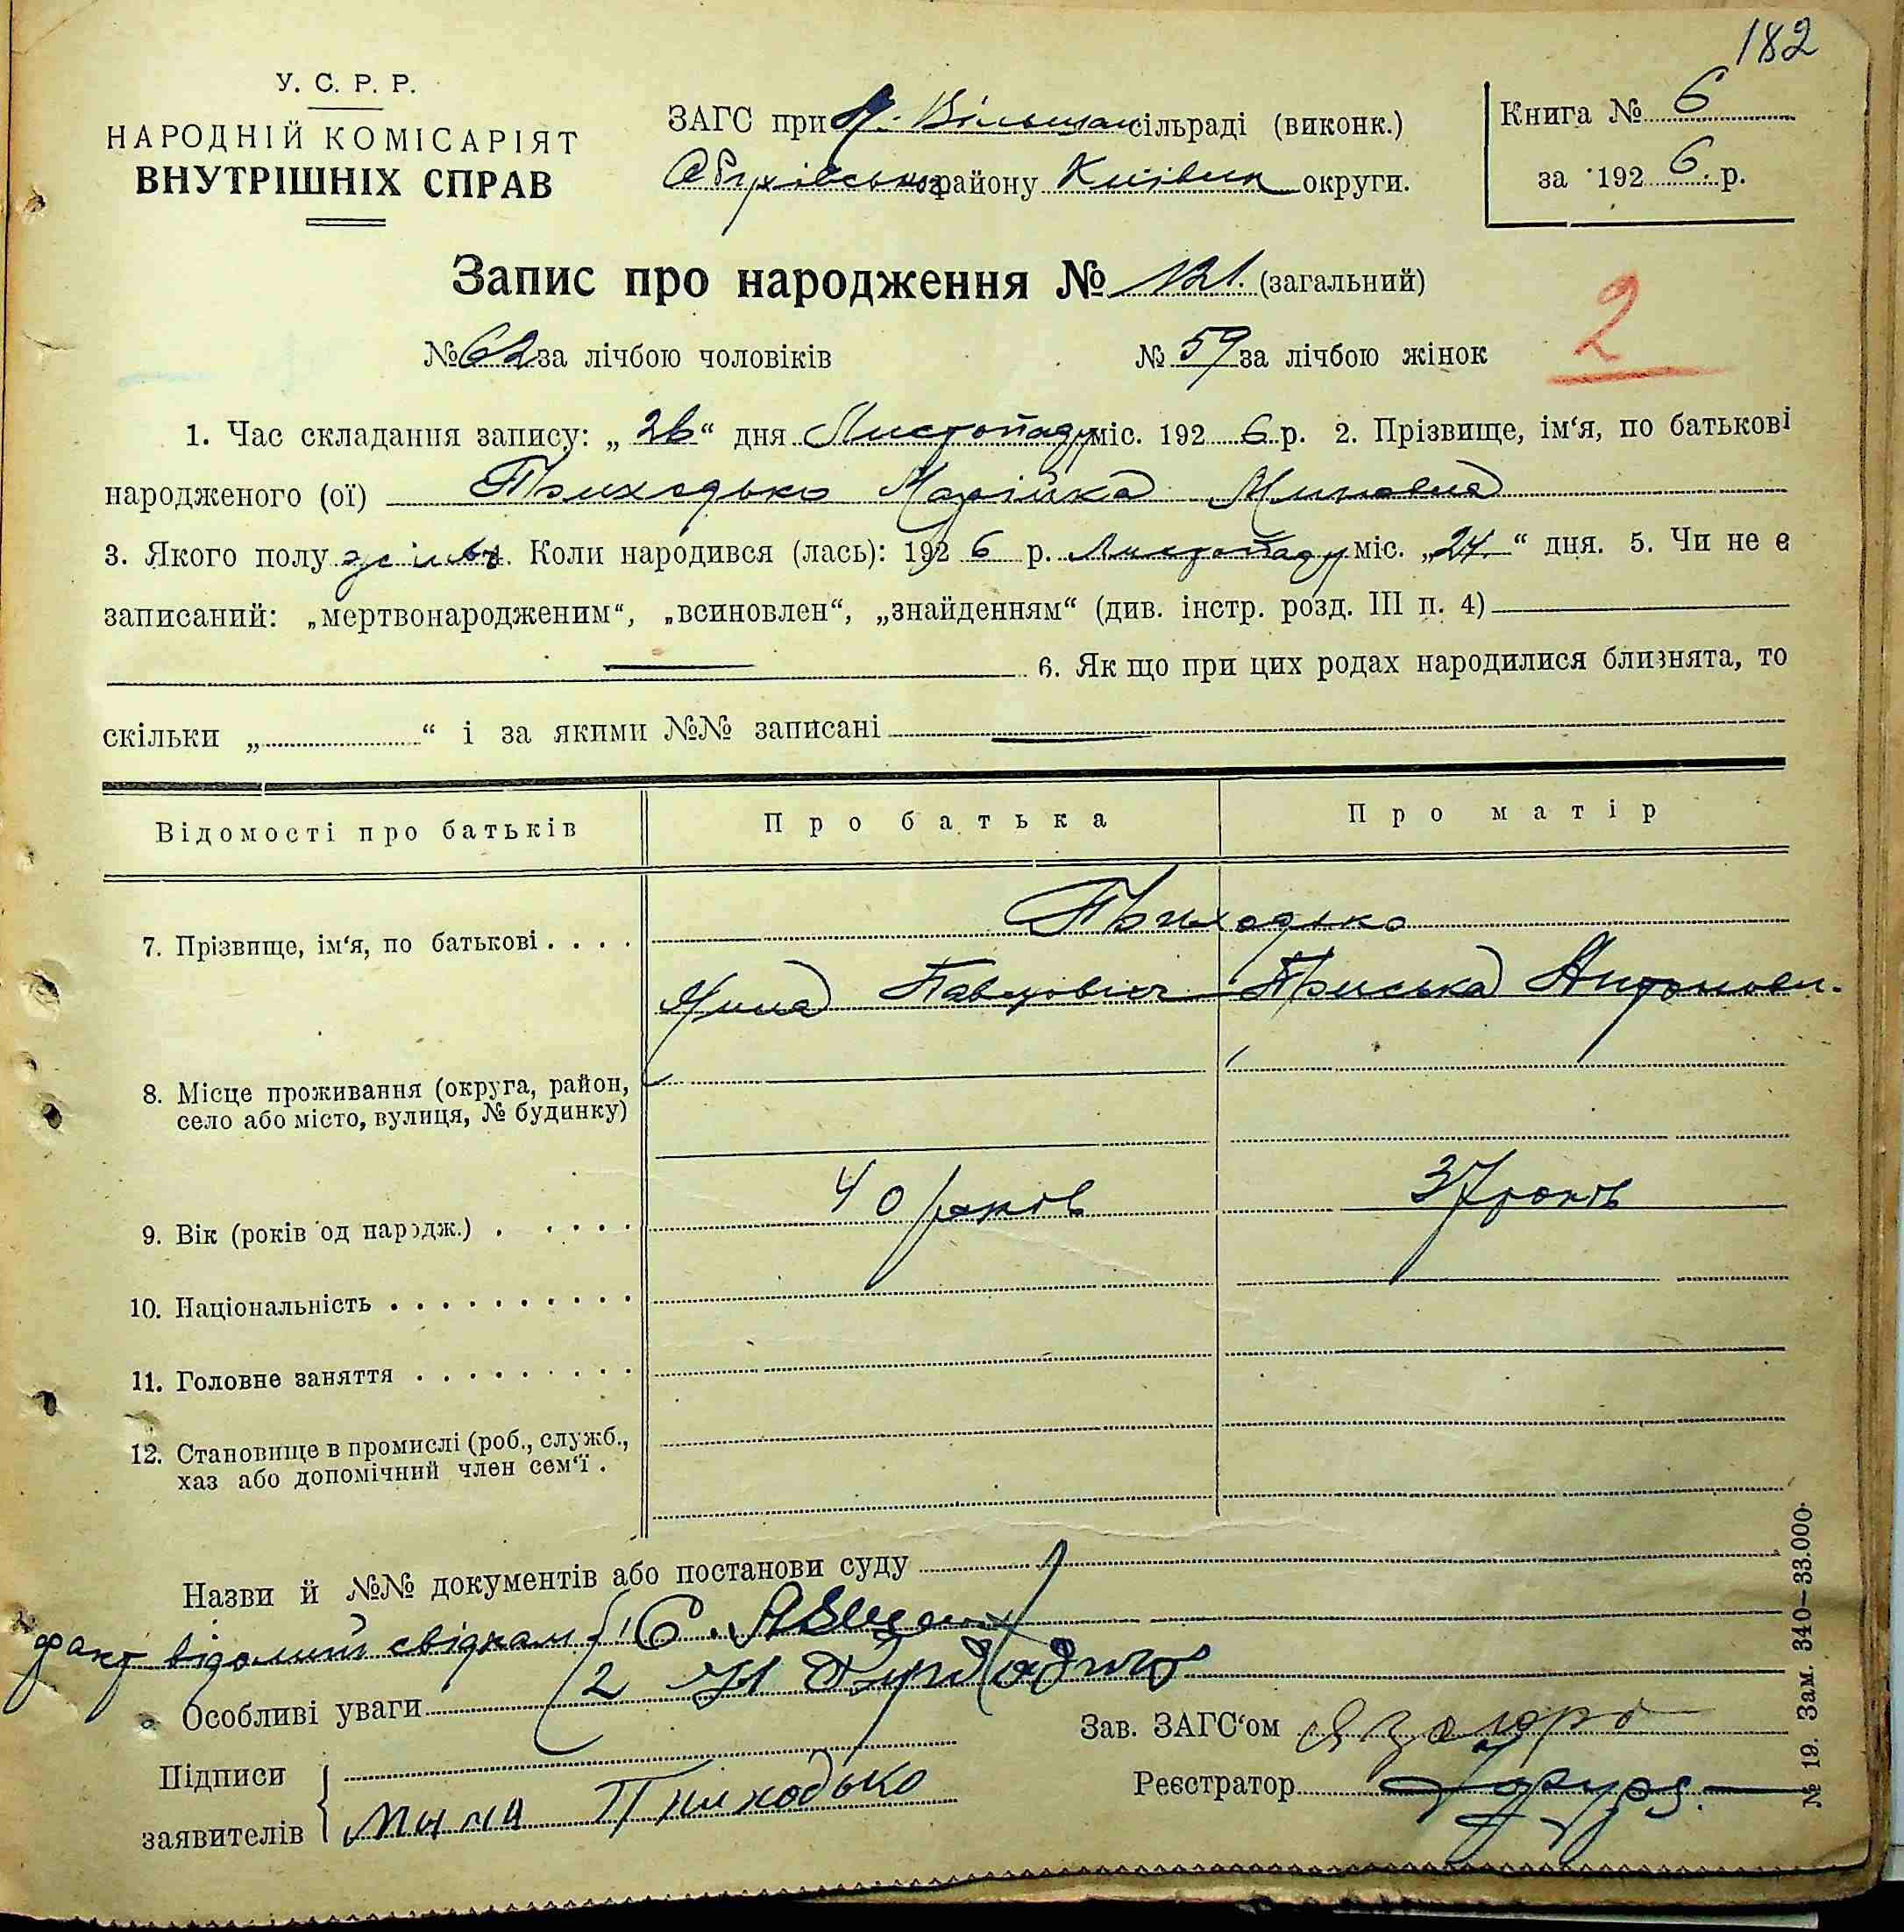 182
У. С. Р. Р.
НАРОДНІЙ КОМІСАРІЯТ
ВНУТРІШНІХ СПРАВ
ЗАГС при В. Вільшан сільраді (виконк.)
Обухівського району Київськ округи.
Книга № 6
за 192 6. р.
Запис про народження № 121. (загальний)
№ 62 за лічбою чоловіків № 59 за лічбою жінок
2
1. Час складання запису: „ 26 “ дня Листопаду міс. 192 6 р. 2. Прізвище, ім‘я, по батькові
народженого (ої) Приходько Марійка Минаевна
3. Якого полу жіноч 4. Коли народився (лась): 192 6 р. Листопаду міс. „ 24. “ дня. 5. Чи не є
записаний: „мертвонародженим“, „всиновлен“, „знайденням“ (див. інстр. розд. III п. 4)
6. Як що при цих родах народилися близнята, то
скільки „ “ і за якими №№ записані
Відомості про батьків Про батька Про матір
7. Прізвище, ім‘я, по батькові . . . . Приходько
Мина Павлович Приська Антонови.
8. Місце проживання (округа, район,
село або місто, вулиця, № будинку)
9. Вік (років од народж.) . . . . . 40 років 37 років
10. Національність . . . . . . . . . .
11. Головне заняття . . . . . . . . .
12. Становище в промислі (роб., служб.,
хаз або допомічний член сем‘ї .
Назви й №№ документів або постанови суду
факт відомий свідкам 1 С.
2
Особливі уваги
Зав. ЗАГС‘ом
Підписи
заявителів Мина Приходько
Реєстратор
№ 19. Зам. 340—33.000.